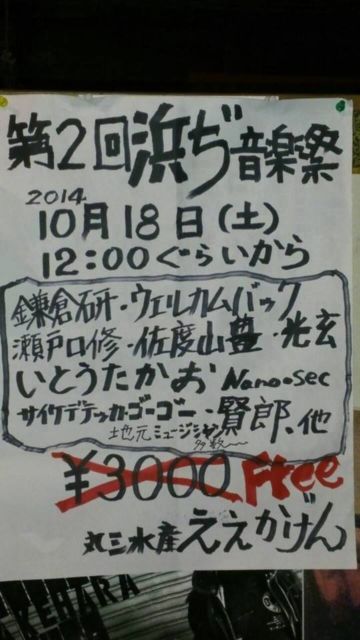 第2回浜ぢ音楽祭
2014.
10月18日(土)
12:00ぐらいから
鎌倉研・ウェルカムバック
瀬戸口修・佐渡山豊・光玄
いとうたかお Nano・sec
サイケデテッカ・ゴーゴー・賢郎、他
地元ミュージシャン多数〜
¥3000 Free
丸三水産ええかげん
EHARA